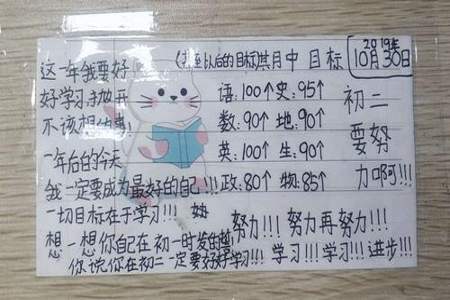 (扌至以后的目标)其月中 目标 2019年
10月30日
这一年我要好
好学习,抛开
不该想的事!
一年后的今天
我一定要成为最好的自己!!!
一切目标在于学习!!!
语:100个 史:95个
数:90个 地:90个
英:100个 生:90个
政:80个 物:85个
初二
要努
力啊!!!
努力!!! 努力再努力!!!
想一想你自己在初一时发的誓
你说你在初二一定要好好学习!!! 学习!!! 学习!!! 进步!!!